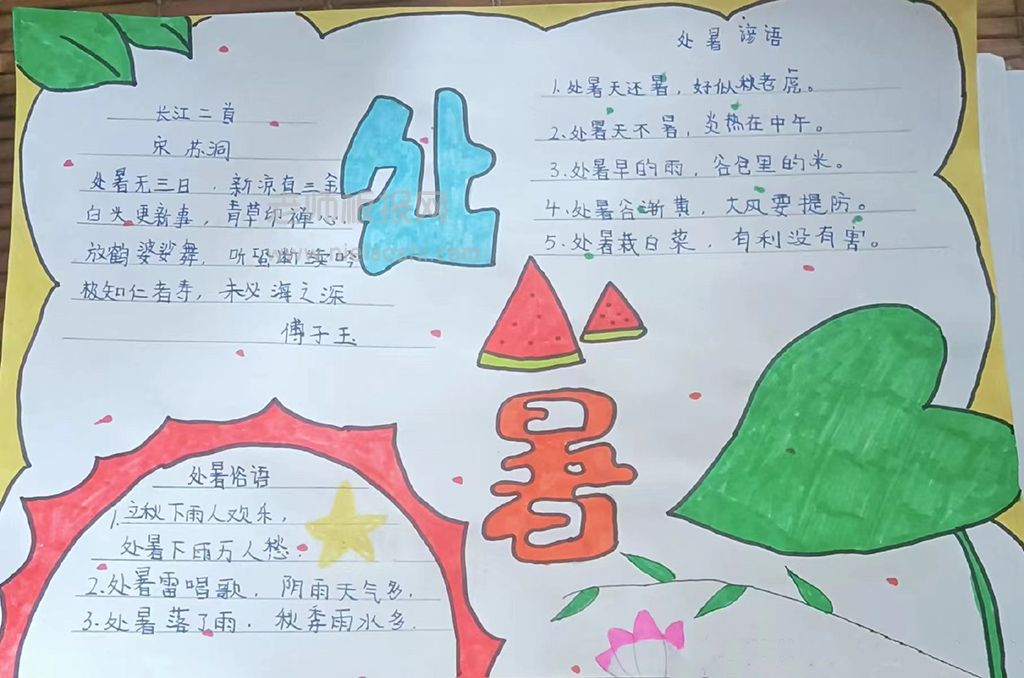 长江二首
宋 苏洞
处暑无三日，新凉直三金
白头更新事，青草印禅心
放鹤婆娑舞，听蛩断续吟
极知仁者寿，未必海之深
傅子玉
处暑
处暑谚语
1.处暑天还暑，好似秋老虎。
2.处暑天不暑，炎热在中午。
3.处暑早的雨，谷仓里的米。
4.处暑谷渐黄，大风要提防。
5.处暑栽白菜，有利没有害。
处暑俗语
1.立秋下雨人欢乐，
处暑下雨万人愁.
2.处暑雷唱歌，阴雨天气多.
3.处暑落了雨，秋季雨水多.